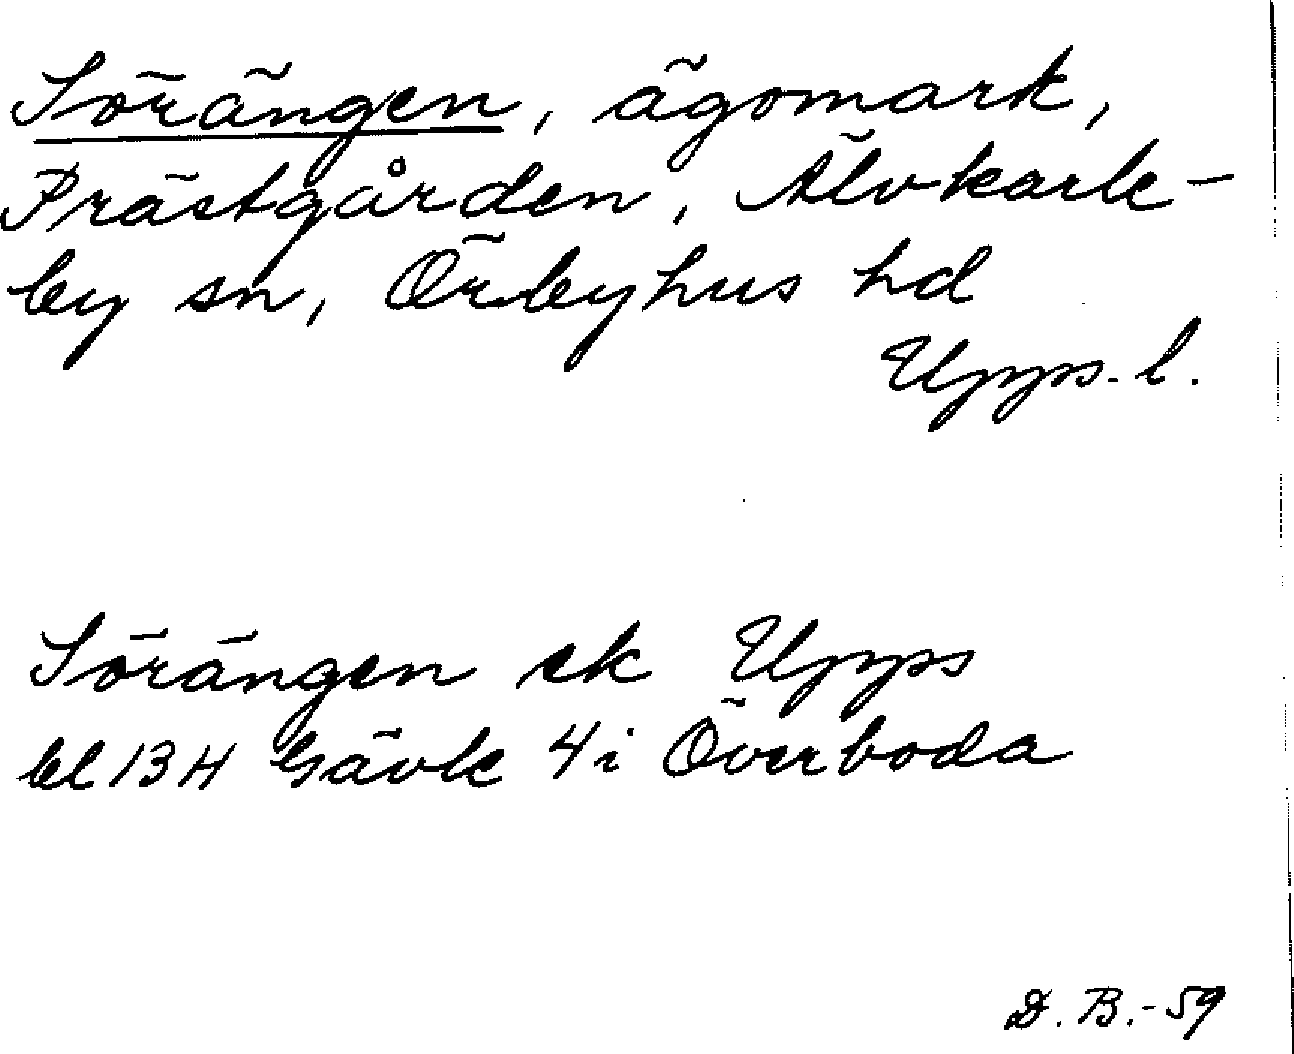 Sörängen, ägomark,
Prästgården, Älvkarle-
by sn, Örbyhus hd
Upps. l.
Sörängen ek Upps
bl 13 H Gävle 4 i Överboda
D. B. - 59